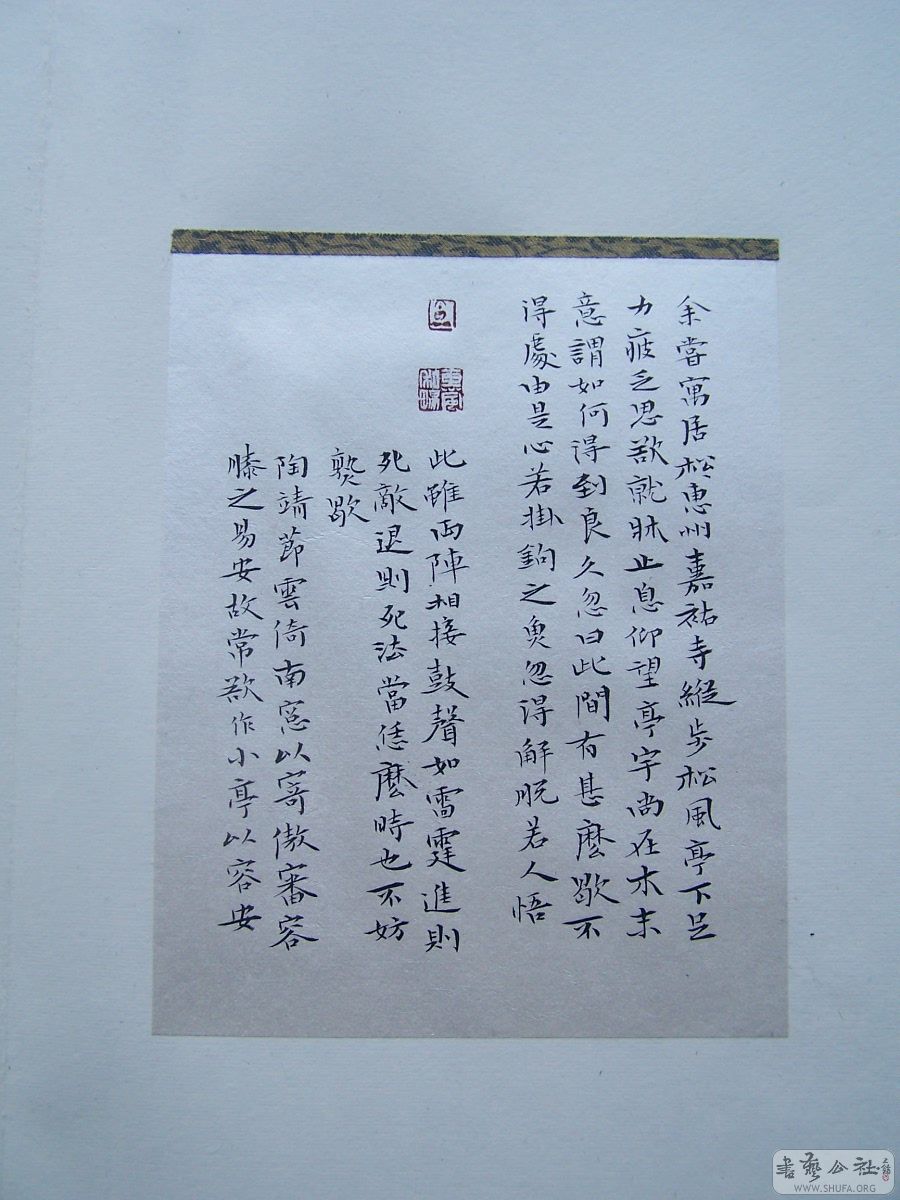 余嘗寓居於惠州嘉祐寺縱步松風亭下足
力疲乏思欲就牀止息仰望亭宇尚在木末
意謂如何得到良久忽曰此間有甚麼歇不
得處由是心若掛鉤之魚忽得解脫若人悟
此雖兩陣相接鼓聲如雷霆進則
死敵退則死法當恁麼時也不妨
熟歇
陶靖節雲倚南窓以寄傲審容
膝之易安故常欲作小亭以容安
書藝公社
WWW.SHUFA.ORG